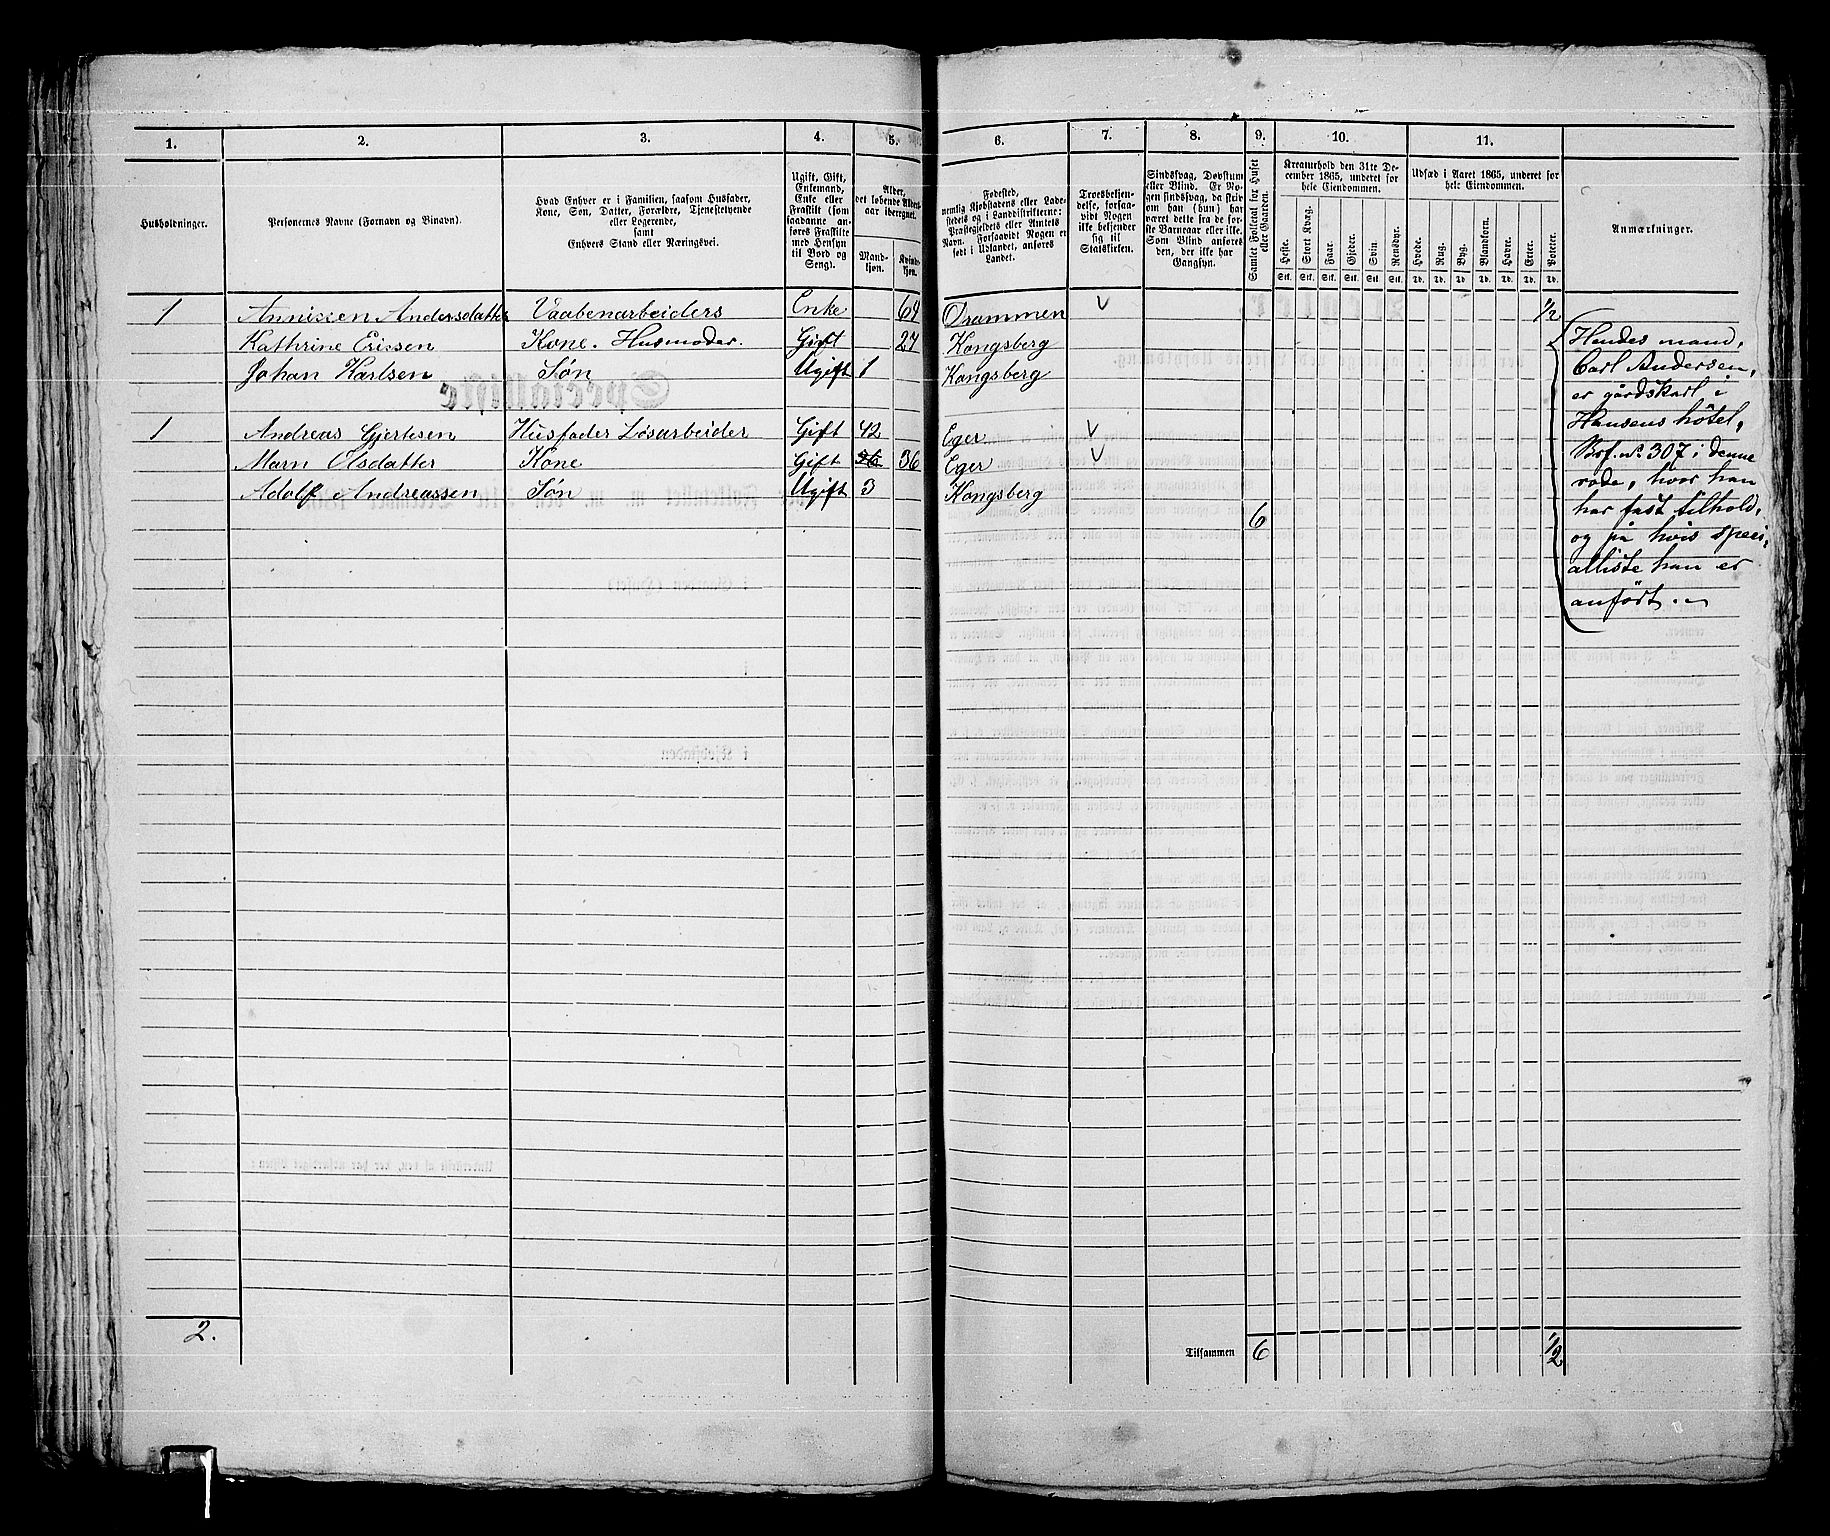 1. 2. 3. 4. 5. 6. 7. 8. 9. 10. 11.
Husholdninger.
Personernes Navne (Fornavn og Binavn).
Hvad Enhver er i Familien, saasom Husfader,
Kone, Søn, Datter, Forældre, Tjenestetyende
eller Logerende,
samt
Enhvers Stand eller Næringsvei.
Ugift, Gift,
Enkemand,
Enke eller
Fraskilt (som
saadanne an-
føres Fraskilte
med Hensyn
til Bord og
Seng).
Alder,
det løbende Alders-
aar iberegnet.
Mand-
kjøn.
Kvind-
kjøn.
Fødested,
nemlig Kjøbstadens eller Lade-
stedets og i Landdistrikterne:
Præstegjeldets eller Amtets
Navn. Forsaavidt Nogen er
født i Udlandet, anføres
Landet.
Troesbekjen-
delse, forsaa-
vidt Nogen
ikke bekjender
sig til
Statskirken.
Sindssvag, Døvstum
eller Blind. Er No-
gen sindssvag, da skriv
om han (hun) har
været dette fra de for-
ste Barneaar eller ikke.
Som Blind anføres
den, der ikke har
Gangsyn.
Samlet Folketal for Huset
eller Gaarden.
Kreaturhold den 31te De-
cember 1865, underet for
hele Eiendommen.
Heste. Stort Kvæg. Faar. Gjeder. Svin. Rensdyr.
Stk. Stk. Stk. Stk. Stk. Stk.
Udsæd i Aaret 1865, underet for
hele Eiendommen.
Hvede. Rug. Byg. Blandkorn. Havre. Erter. Poteter.
Td. Td. Td. Td. Td. Td. Td.
Anmærkninger.
1 Andersdatter Vaabenarbeiders Enke 69 Drammen v 1/2
Kathrine Erissen Kone. Husmoder. Gift 27 Kongsberg
Johan Karlsen Søn Ugift 1 Kongsberg
1 Andreas Gjertsen Husfader Løsarbeider Gift 42 Eger v
Marn Olsdatter Kone Gift 36 36 Eger v
Adolf Andreassen Søn Ugift 3 Kongsberg
6
Hendes mand,
Carl Andersen,
er gårdskarl i
Hansens hôtel,
No. 307 i denne
rode, hvor han
har fast tilhold,
og på hvis speci-
alliste han er
anført.
2.
Tilsammen 6 1/2